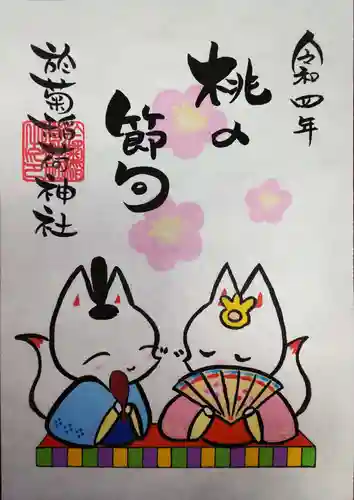 令和四年
桃の
節句
於菊稲荷神社